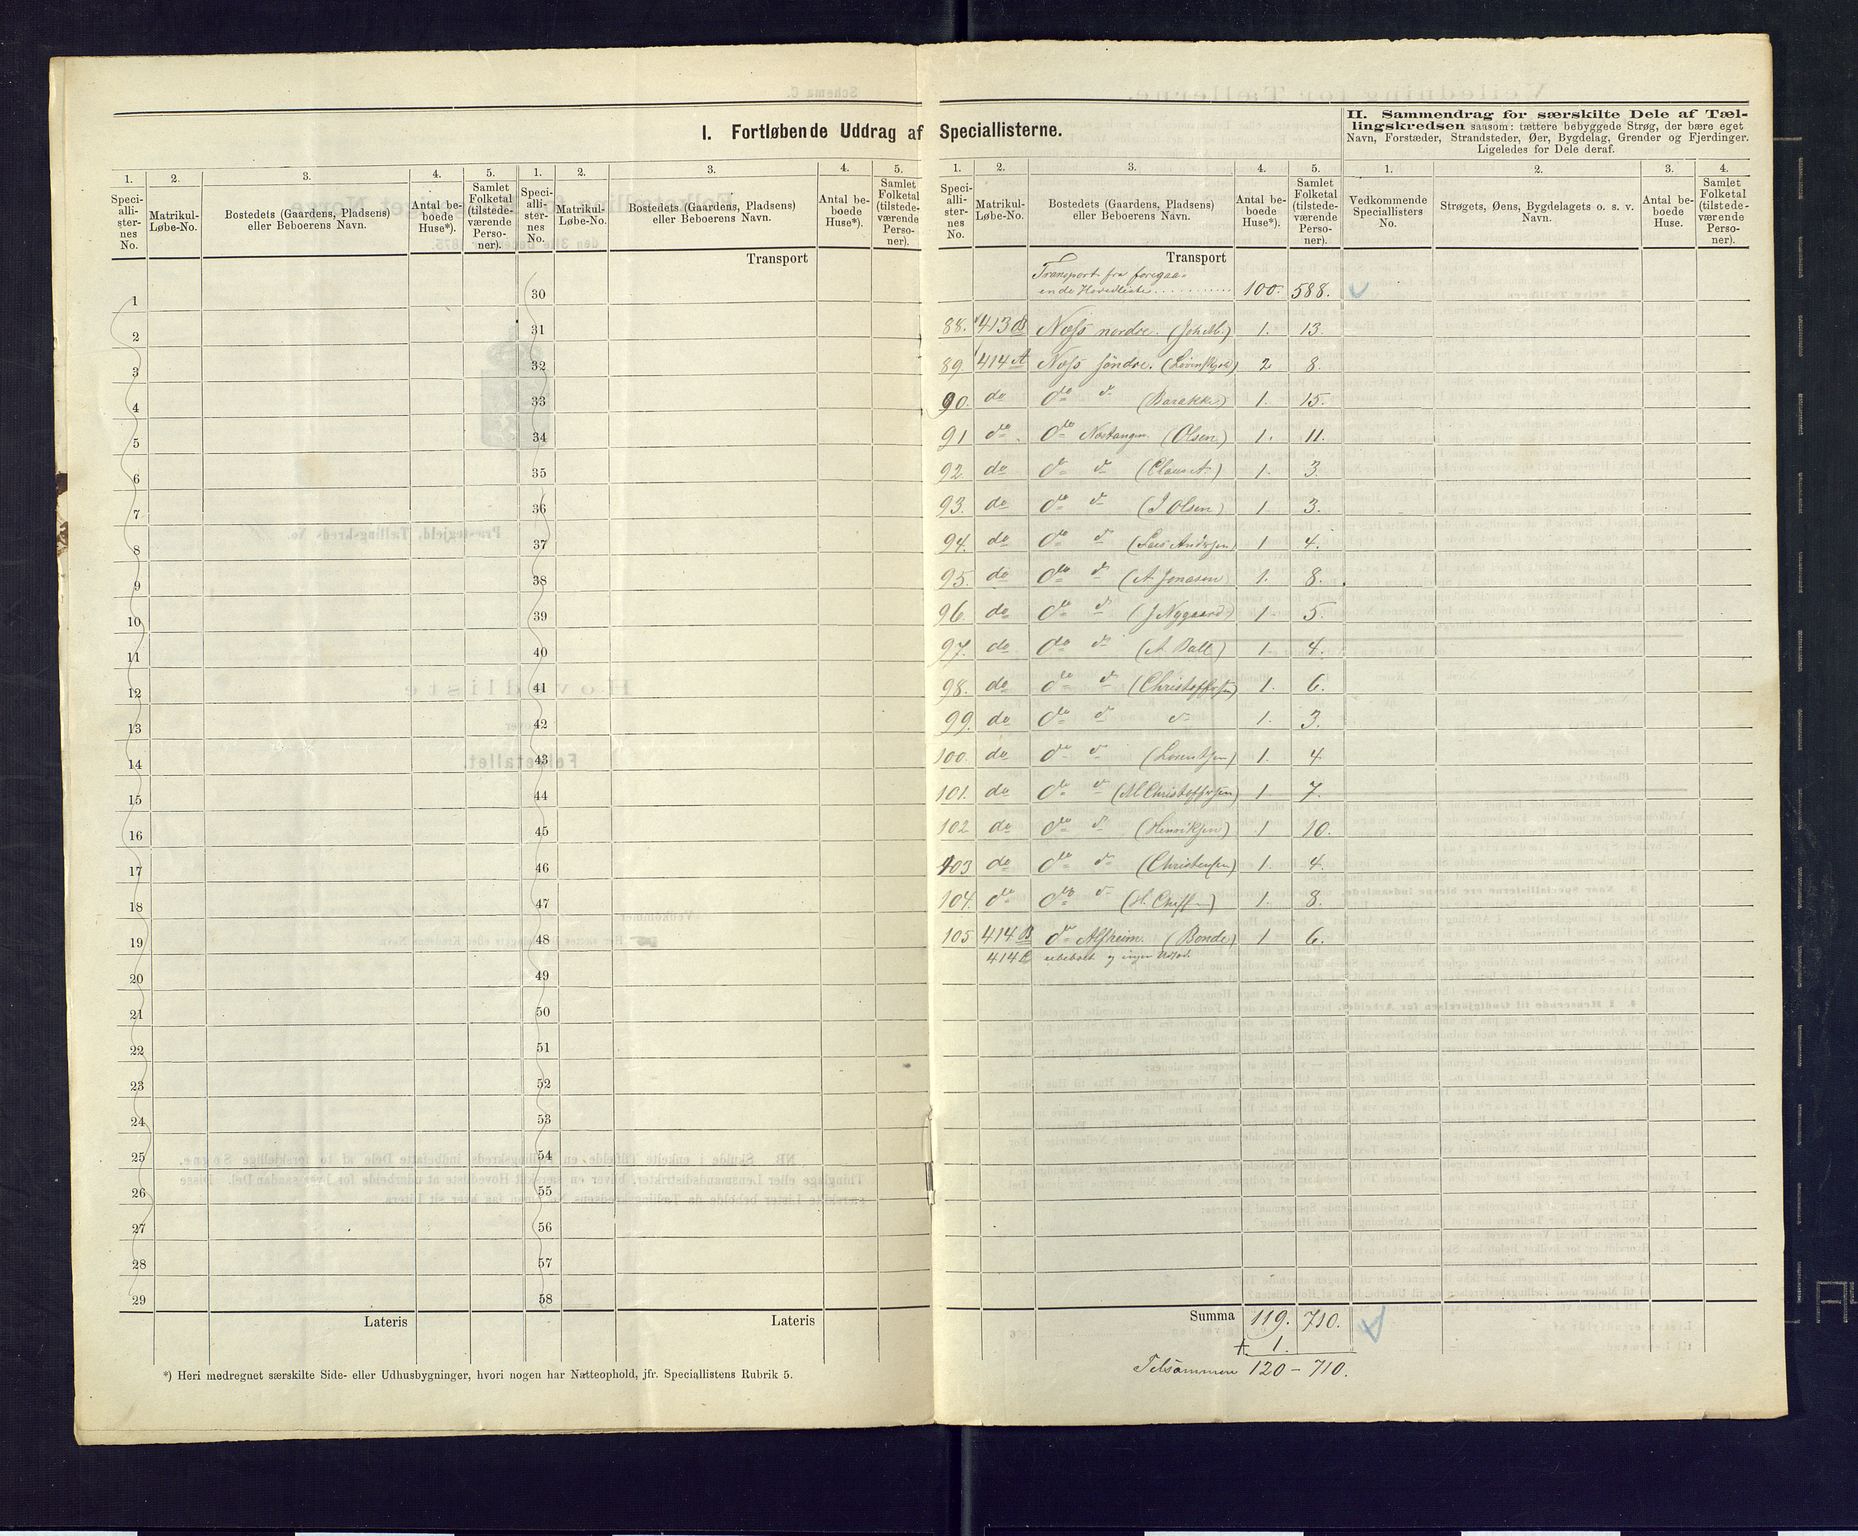 I. Fortløbende Uddrag af Speciallisterne.
II. Sammendrag for særskilte Dele af Tæl-
lingskredsen saasom: tættere bebyggede Strøg, der bære eget
Navn, Forstæder, Strandsteder, Øer, Bygdelag, Grender og Fjerdinger.
Ligeledes for Dele deraf.
1. 2. 3. 4. 5. 1. 2. 3. 4. 5.
Speciallisternes No. Matrikul-Løbe-No. Bostedets (Gaardens, Pladsens) eller Beboerens Navn. Antal beboede Huse*). Samlet Folketal (tilstedeværende Personer).
Speciallisternes No. Matrikul-Løbe-No. Bostedets (Gaardens, Pladsens) eller Beboerens Navn. Antal beboede Huse*). Samlet Folketal (tilstedeværende Personer).
Transport
1 30
2 31
3 32
4 33
5 34
6 35
7 36
8 37
9 38
10 39
11 40
12 41
13 42
14 43
15 44
16 45
17 46
18 47
19 48
20 49
21 50
22 51
23 52
24 53
25 54
26 55
27 56
28 57
29 58
Lateris Lateris
*) Heri medregnet særskilte Side- eller Udhusbygninger, hvori nogen har Natteophold, jfr. Speciallistens Rubrik 5.
1. 2. 3. 4. 5. 1. 2. 3. 4.
Speciallisternes No. Matrikul-Løbe-No. Bostedets (Gaardens, Pladsens) eller Beboerens Navn. Antal beboede Huse*). Samlet Folketal (tilstedeværende Personer).
Vedkommende Speciallisters No. Strøgets, Øens, Bygdelagets o. s. v. Navn. Antal beboede Huse. Samlet Folketal (tilstedeværende Personer).
Transport
Transport fra foregaa-
ende Hovedliste . . . . . . . . . . 100. 588.
88. 413 B Næss nordre. 1. 13.
89. 414 A Næss søndre. (Løvenskjold) 2 8.
90. do do do (Barakke) 1. 15.
91 do do (Olsen) 1. 11.
92. do do do 1. 3.
93. do do do (J Olsen) 1 3.
94. do do do (Lars Andersen) 1 4.
95. do do do (A Jonasen 1. 8.
96. do do do (J Nygaard) 1. 5.
97. do do do (A Dall) 1. 4.
98. do do do (Christoffersen) 1. 6.
99. do do do do 1. 3.
100. do do do (Lorentsen) 1. 4
101. do do do (M Christoffersen) 1 7.
102 do do do (Henriksen) 1 10.
103 do do do (Christensen) 1. 4.
104. do do do 1. 8.
105 414 B do Alfheim. (Bonde) 1 6.
414 C ubeboet og ingen
Summa 119. 710.
+ 1.
Tilsammen 120 – 710.